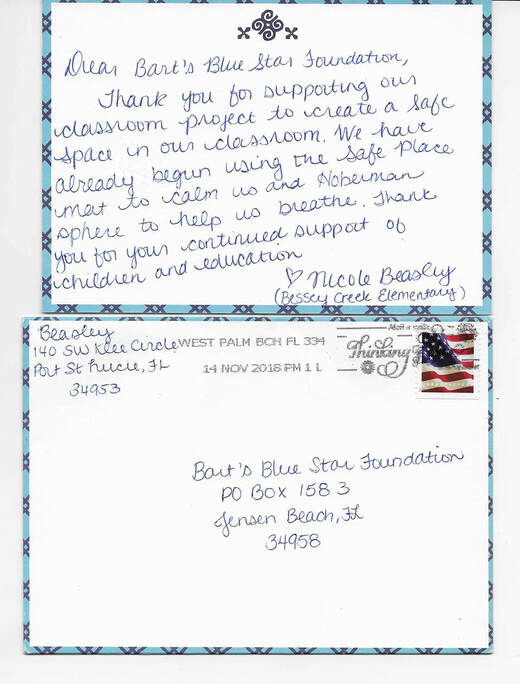 Dear Bart's Blue Star Foundation,
Thank you for supporting our
classroom project to create a safe
space in our classroom. We have
already begun using the Safe Place
mat to calm us and Hoberman
sphere to help us breathe. Thank
you for your continued support of
children and education
♡ Nicole Beasley
(Bessey Creek Elementary)
Beasley
140 SW Klee Circle
Port St Lucie, FL
34953
WEST PALM BCH FL 334
14 NOV 2018 PM 1 L
Thinking
Bart's Blue Star Foundation
PO BOX 1583
Jensen Beach, FL
34958